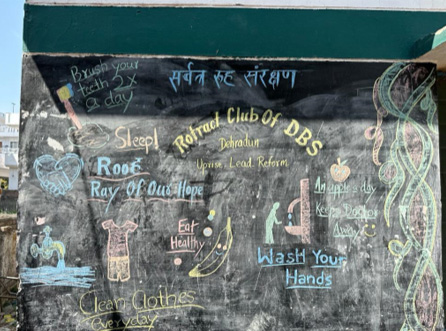 Brush your
teeth 2x
a day
सर्वत्र रूह संरक्षण
Sleep!
Rotract Club Of DBS
Dehradun
Uprise. Lead. Reform
Roof
Ray Of Our Hope
An apple a day
Keeps Doctor
Away
Eat
Healthy
Wash Your
Hands
Clean Clothes
Everyday